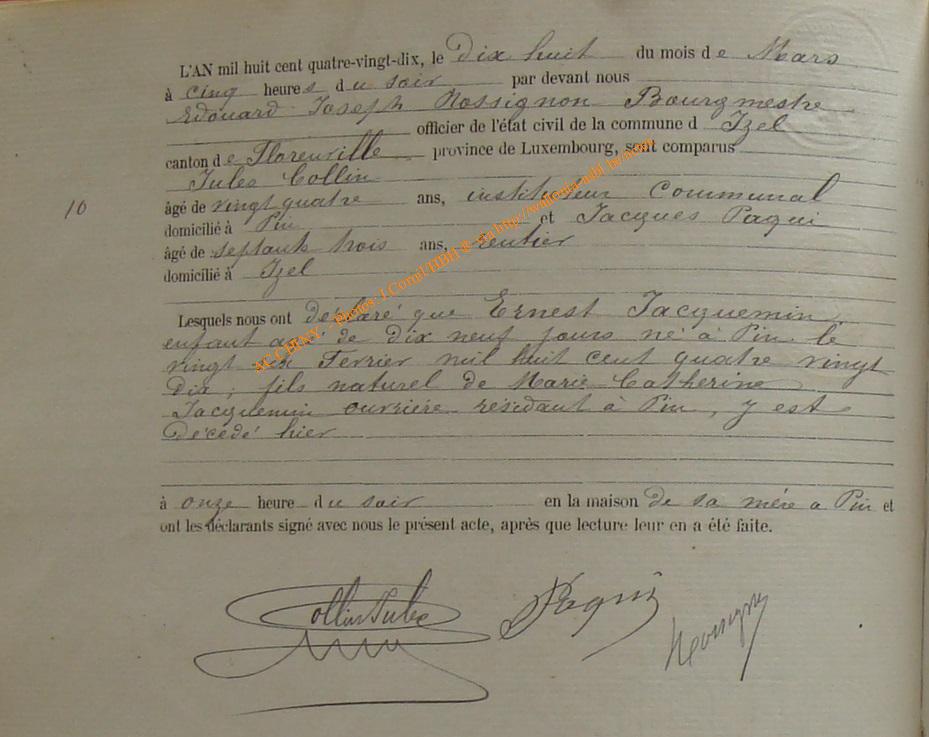 L'AN mil huit cent quatre-vingt-dix, le Dix huit du mois de Mars
à cinq heures du soir par devant nous
Edouard Joseph Rossignon Bourgmestre
officier de l'état civil de la commune d Izel
canton de Florenville province de Luxembourg, sont comparus
Jules Collin
10
âgé de vingt quatre ans, instituteur Communal
domicilié à Pin et Jacques Paqui
âgé de septante trois ans, rentier
domicilié à Izel
Lesquels nous ont déclaré que Ernest Jacquemin,
enfant agé de dix neuf jours né à Pin le
vingt Fevrier mil huit cent quatre vingt
dix, fils naturel de Marie Catherine
Jacquemin ouvrière résidant à Pin, y est
décédé hier
à onze heure du soir en la maison de sa mère a Pin et
ont les déclarants signé avec nous le présent acte, après que lecture leur en a été faite.
Collin Jules
JPaqui
AC CHINY - photos: J.Cornil HBH @ via http://wallonia-asbl.be/mom